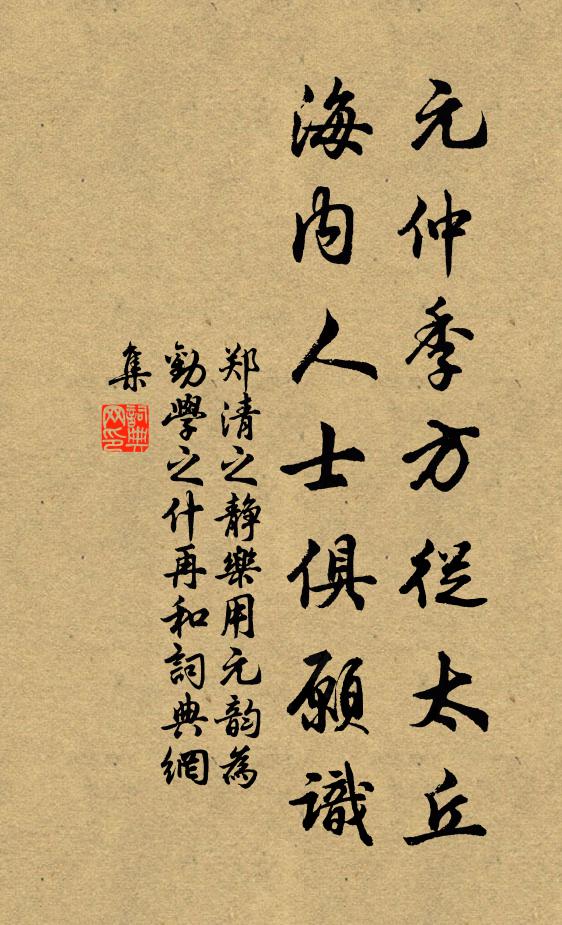 元仲季方從太丘
海內人士俱願識
郑清之静樂用元韵為
勸學之什再和詞典網
集
詞典網印